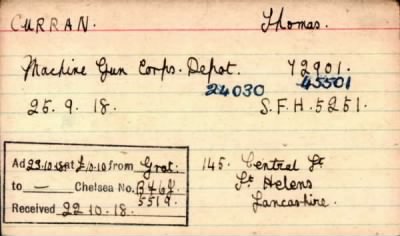 CURRAN. Thomas.
Machine Gun Corps. Depot. 72901.
24030 45501
25.9.18. S.F.H. 5251.
Ad 23.10.18 at £10.10 from Grat:
to — Chelsea No.
5519.
Received 22.10.18.
145. Central St.
St Helens
Lancashire.